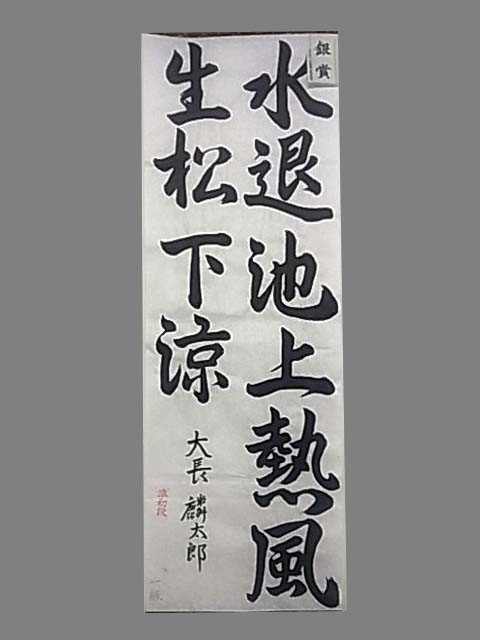 銀賞
水退池上熱風
生松下涼
大長麟太郎
準初段
一級